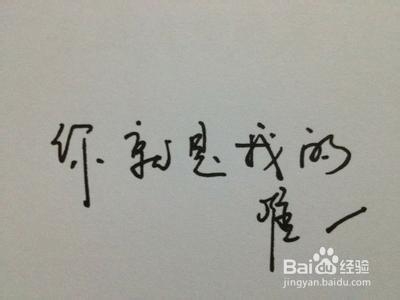 你就是我的
唯一
Baidu 经验
jingyan.baidu.com